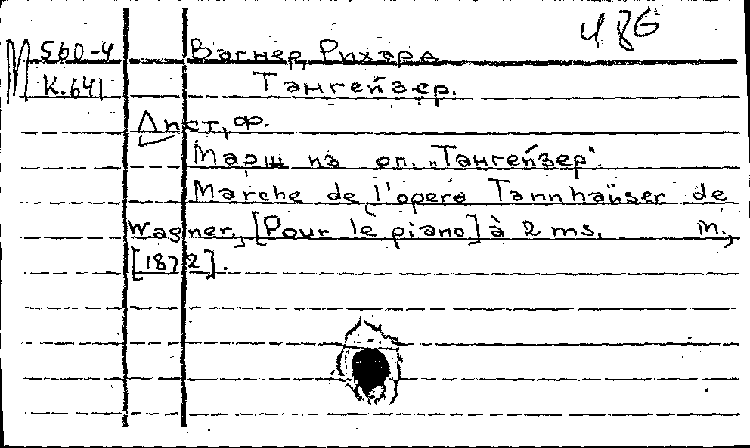 486
М 560-4 Вагнер, Рихард
К.641 Тангейзер.
Лист, Ф.
Марш из оп. „Тангейзер“.
Marche de l'opera Tannhaüser de
Wagner, [Pour le piano] à 2 ms. М.,
[1872].